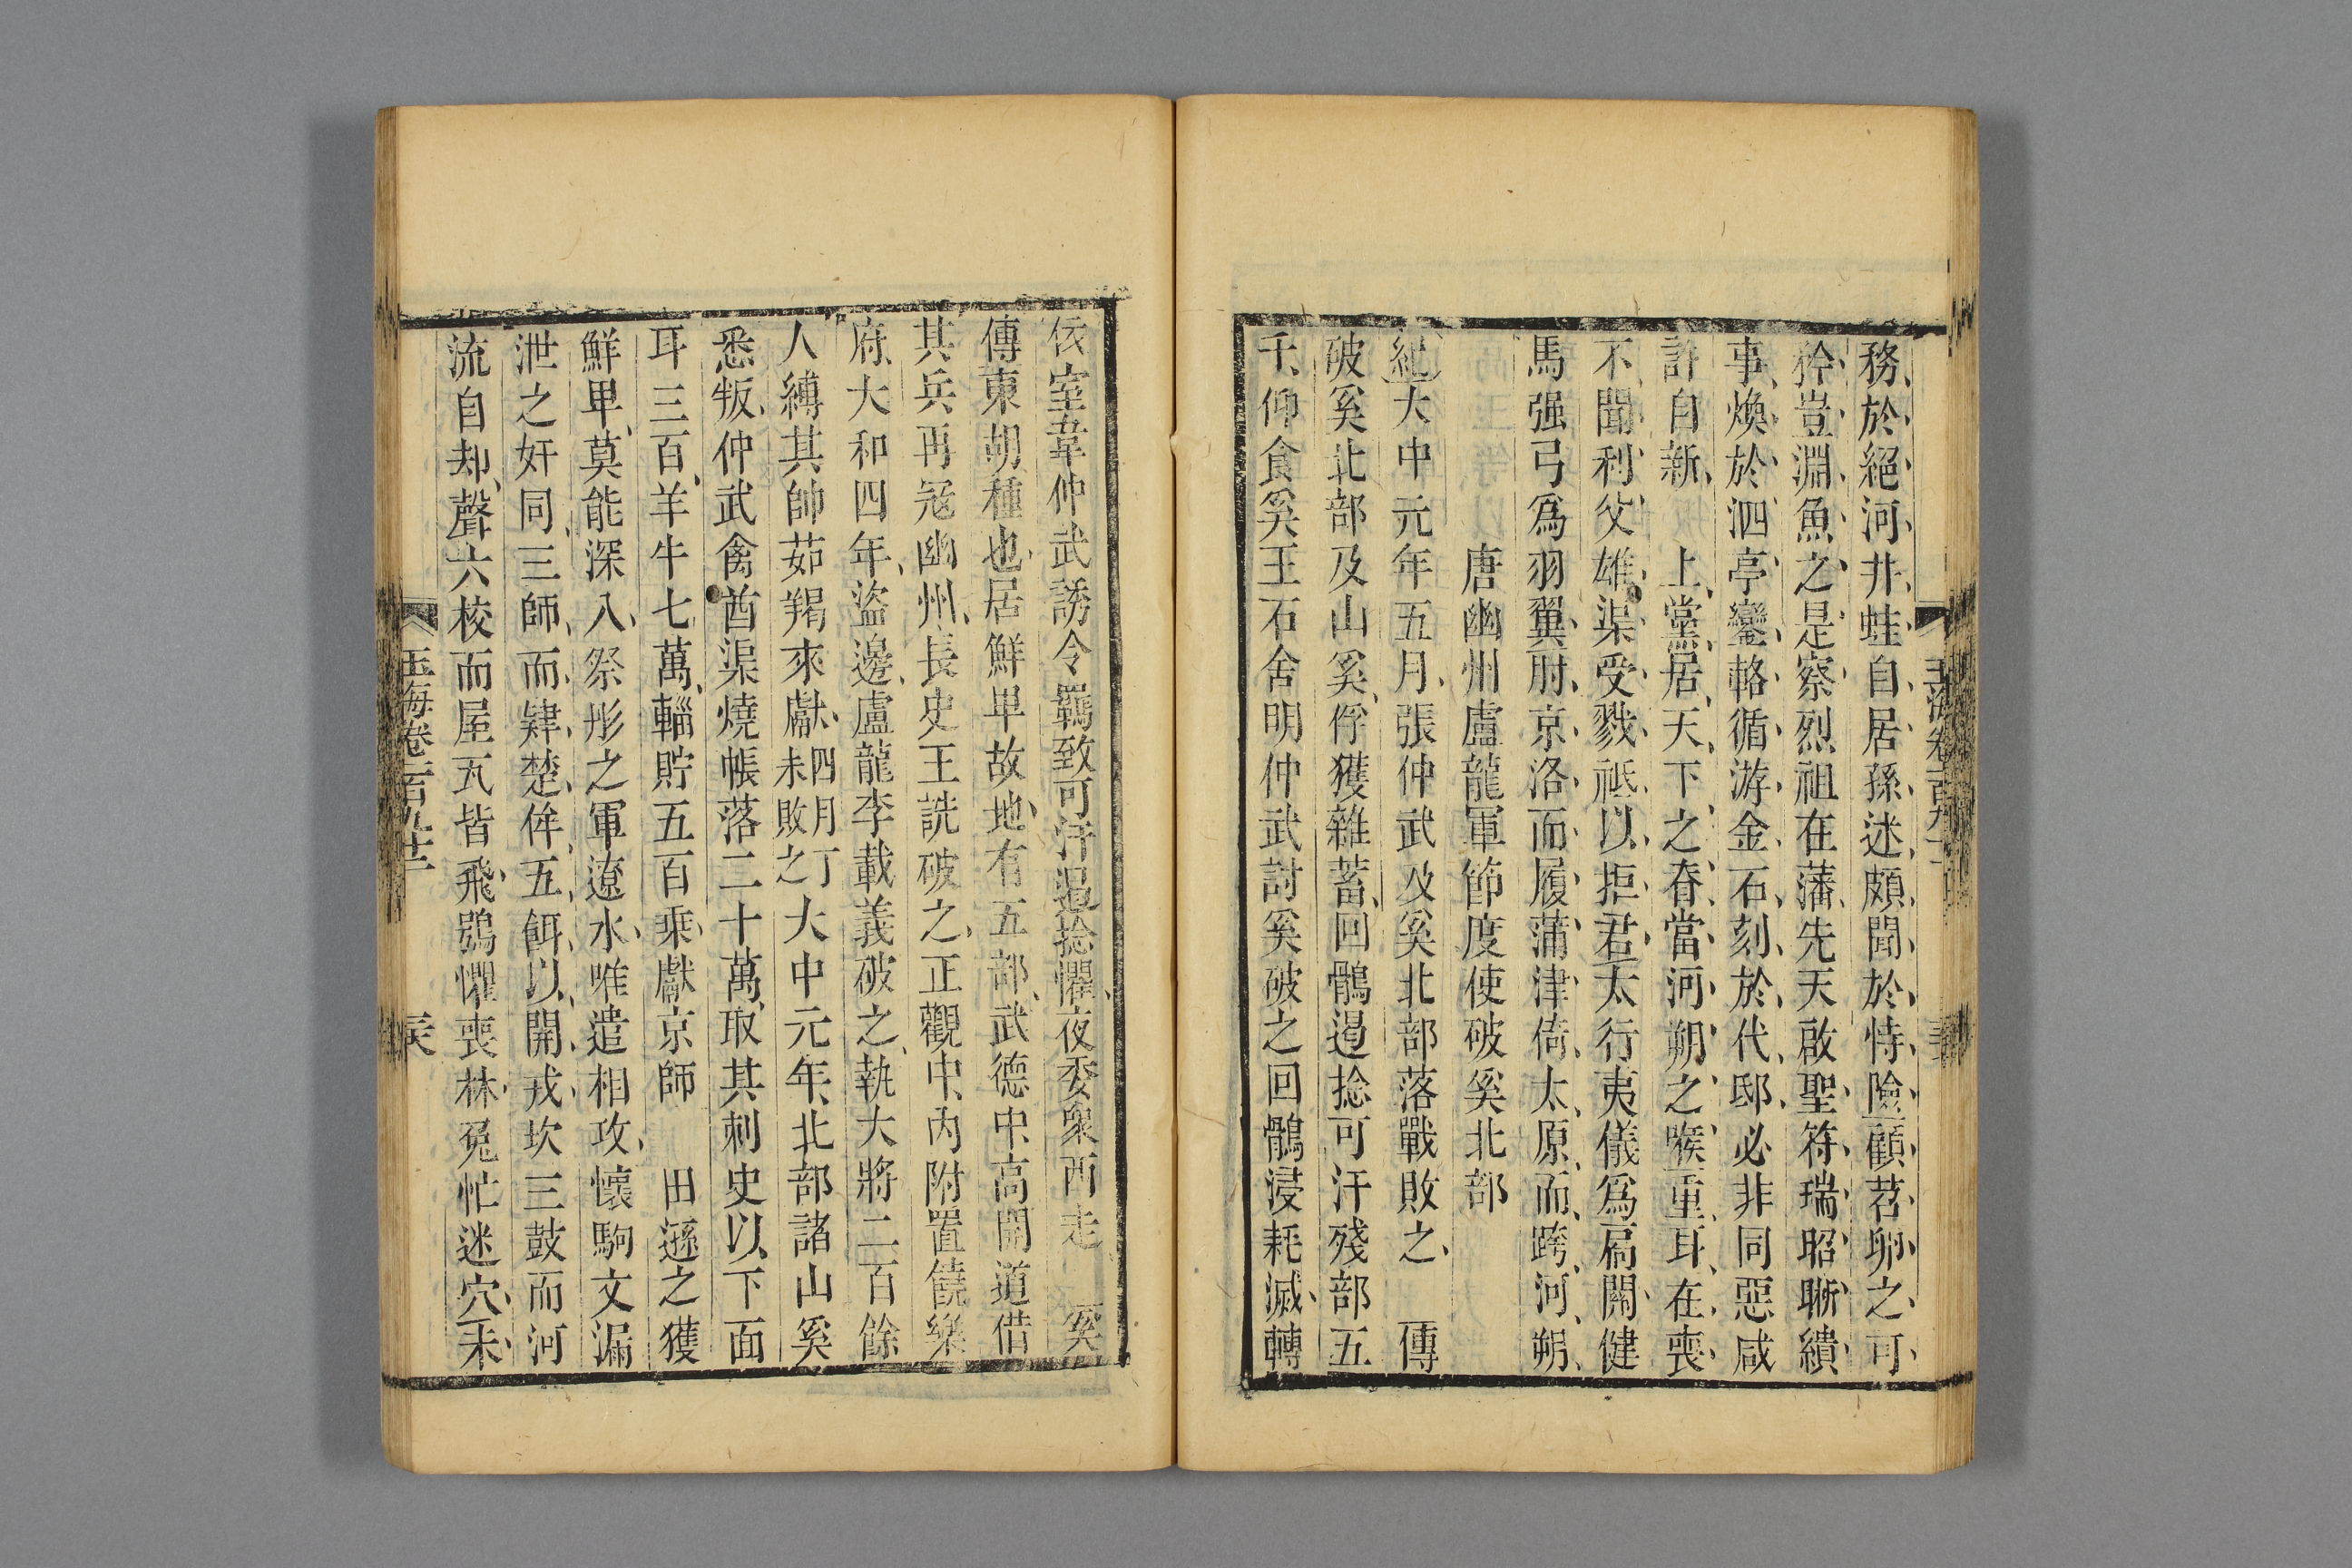 務於絕河井蛙自居孫述頗聞於恃險顧苕卵之可
矜豈淵魚之是察烈祖在藩先天啟聖符瑞昭晰繢
事煥於泗亭鑾輅循游金石刻於代邸必非同惡咸
許自新 上黨居天下之脊當河朔之喉重耳在喪
不聞利父雄渠受戮祗以拒君太行夷儀爲扃關健
馬强弓爲羽翼肘京洛而履蒲津倚太原而跨河朔
唐幽州盧龍軍節度使破奚北部
紀大中元年五月張仲武及奚北部落戰敗之 傳
破奚北部及山奚俘獲雜蓄回鶻遏捻可汗殘部五
千仰食奚王石舍明仲武討奚破之回鶻浸耗滅轉
依室韋仲武誘令羈致可汗遏捻懼夜委衆西走 奚
傳東胡種也居鮮卑故地有五部武德中高開道借
其兵再冦幽州長史王詵破之正觀中內附置饒樂
府大和四年盜邊盧龍李載義破之執大將二百餘
人縛其帥茹羯來獻四月丁未敗之大中元年北部諸山奚
悉叛仲武禽酋渠燒帳落二十萬取其刺史以下面
耳三百羊牛七萬輜貯五百乘獻京師 田遜之獲
鮮卑莫能深入祭彤之軍遼水唯遣相攻懷駒文漏
泄之奸同三師而肄楚侔五餌以開戎坎三鼓而河
流自却聲六校而屋瓦皆飛鴞懼喪林兎忙迷穴未
玉海卷一百九十一